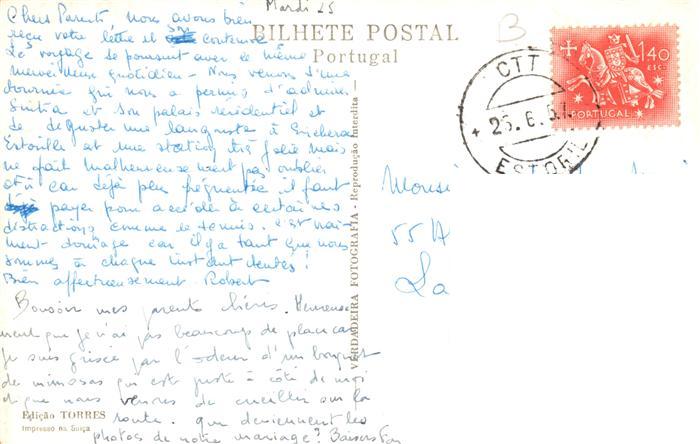 Mardi 25
Chers Parents, nous avons bien
reçu votre lettre et son contenu
Le voyage se poursuit avec le même
merveilleux quotidien - Nous venons d'une
tournée qui nous a permis d'admirer
Sintra et son palais résidentiel et
de déguster une langouste à Ericeira
Estorille et une station très jolie mais
ne fait malheureusement pas oublier
car déjà plein fréquentée il faut
payer pour accéder à certaines
distractions comme le tennis. c'est vrai-
ment dommage car il y a tant que nous
sommes à chaque instant tentés!
Bien affectueusement Robert
Bonsoir mes parents chéris. Heureuse-
ment que je n'ai pas beaucoup de place car
je suis grisée par l'odeur d'un bouquet
de mimosas qui est juste à côté de moi
et que nous venons de cueillir sur la
route. que deviennent les
photos de notre mariage? Baisers
BILHETE POSTAL
Portugal
VERDADEIRA FOTOGRAFIA - Reprodução Interdita
Edição TORRES
Impresso na Suíça
B
1$40
ESC.
PORTUGAL
CTT
25.6.57
ESTORIL
Monsi
55 A
La